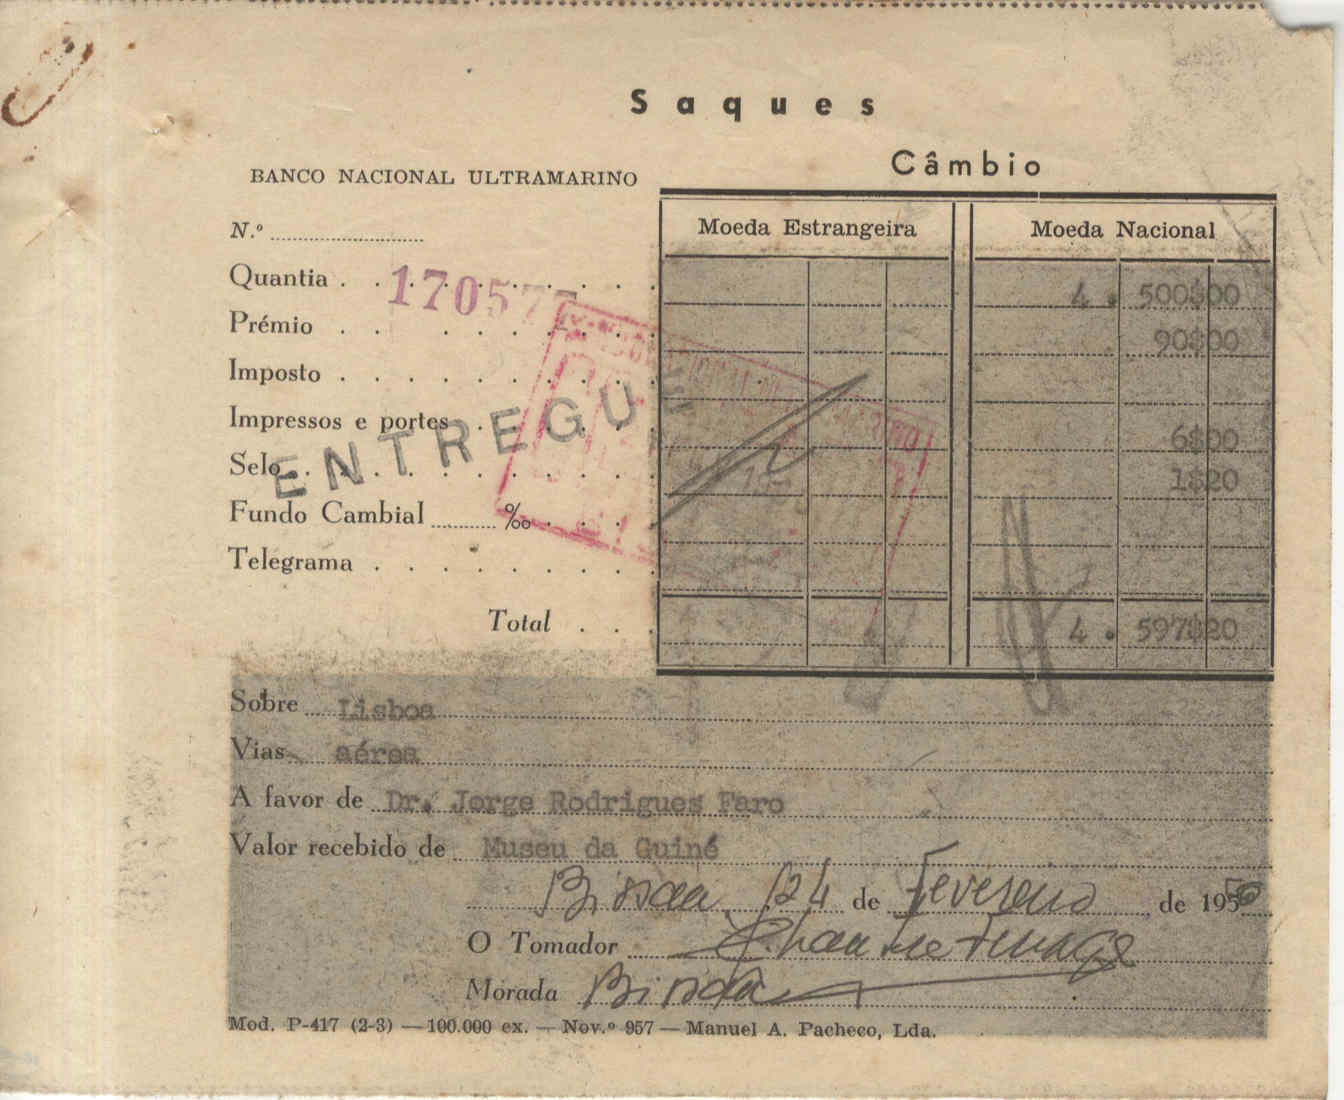 Saques
Câmbio
BANCO NACIONAL ULTRAMARINO
Moeda Estrangeira
Moeda Nacional
N.º
Quantia 17057 4.500$00
Prémio 90$00
Imposto
Impressos e portes 6$00
Selo 1$20
ENTREGU
Fundo Cambial ‰
Telegrama
Total 4.597$20
Sobre Lisboa
Vias aérea
A favor de Dr. Jorge Rodrigues Faro
Valor recebido de Museu da Guiné
Bissau, 24 de Fevereiro de 195
O Tomador
Morada Bissau
Mod. P-417 (2-3) — 100.000 ex. — Nov.º 957 — Manuel A. Pacheco, Lda.